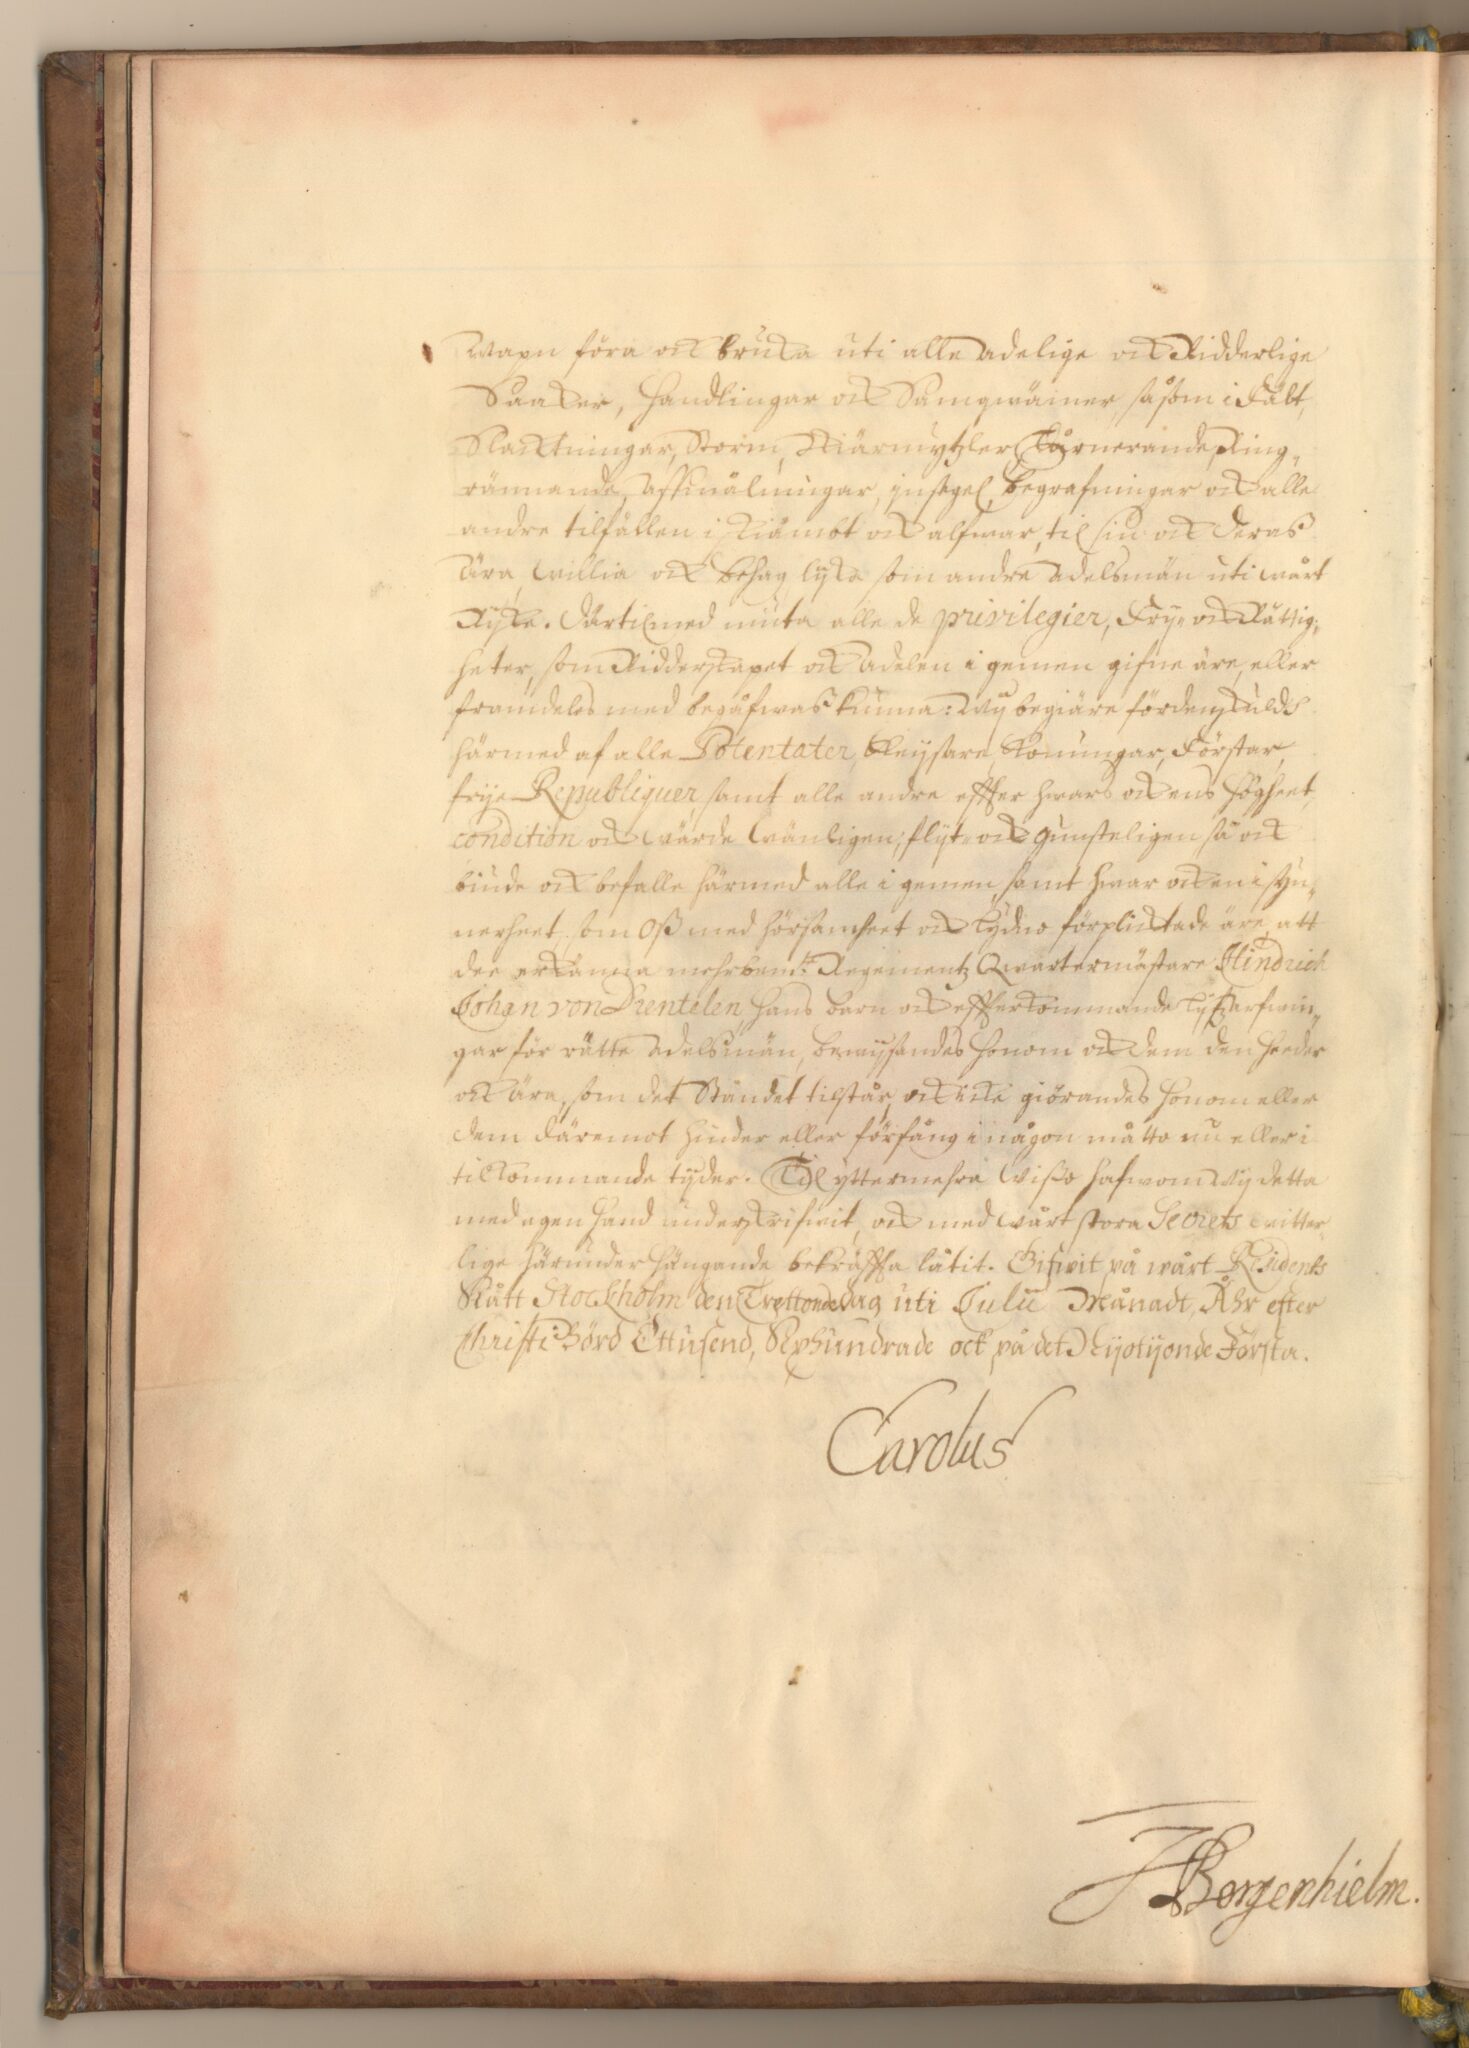 Wapn föra och bruka uti alle adelige och Ridderlige
Saaker, handlingar och Samqwäiner, såsom i Fält,
Slachtningar, Storm, Skärmytzler, Turnerande, Ring-
rännande, Affmålningar, insegel, begrafningar och alle
andre tilfällen i skiämbt och alfwar, til sin och deras
ära, willia och behag lyka som andre adelsmän uti wårt
Ryke. Därtil med niuta alle de privilegier, Fry- och Rättig-
heter, som Ridderskapet och Adelen i gemen gifne äre, eller
framdeles med begåfwas kunna: Wy begiäre fördenskulds
härmed af alle Potentater, Keysare, Konungar, Förstar,
frije Republiquer, samt alle andre effter hwars och ens högheet,
condition och wärde wänligen, flijt- och gunsteligen så och
biude och befalle härmed alle i gemen, samt hwar och en i syn-
nerheet, som Oß med hörsamheet och lydno förplicktade äre, att
dee erkänna mehrbemte: Regementz Qwartermästare Hindrich
Johan von Drentelen, hans barn och effterkommande lyfzarfwin-
gar för rätte adelsmän, bewysandes honom och dem den heeder
och ära, som det Ståndet tilstår, och icke giörandes honom eller
dem däremot hinder eller förfång i någon måtto nu eller i
tilkommande tyder. Til yttermehra wißo hafwom Wy detta
med egen hand underskrifwit, och med wårt stora Secrets witter-
lige härunder hängande bekräffta låtit. Gifwit på wårt Residents
Slått Stockholm den Trettonde dag uti Julii Månadt, Åhr efter
Christi Börd Ettusend, Sexhundrade ock på det Nijotijonde Första.
Carolus
J Bergenhielm.